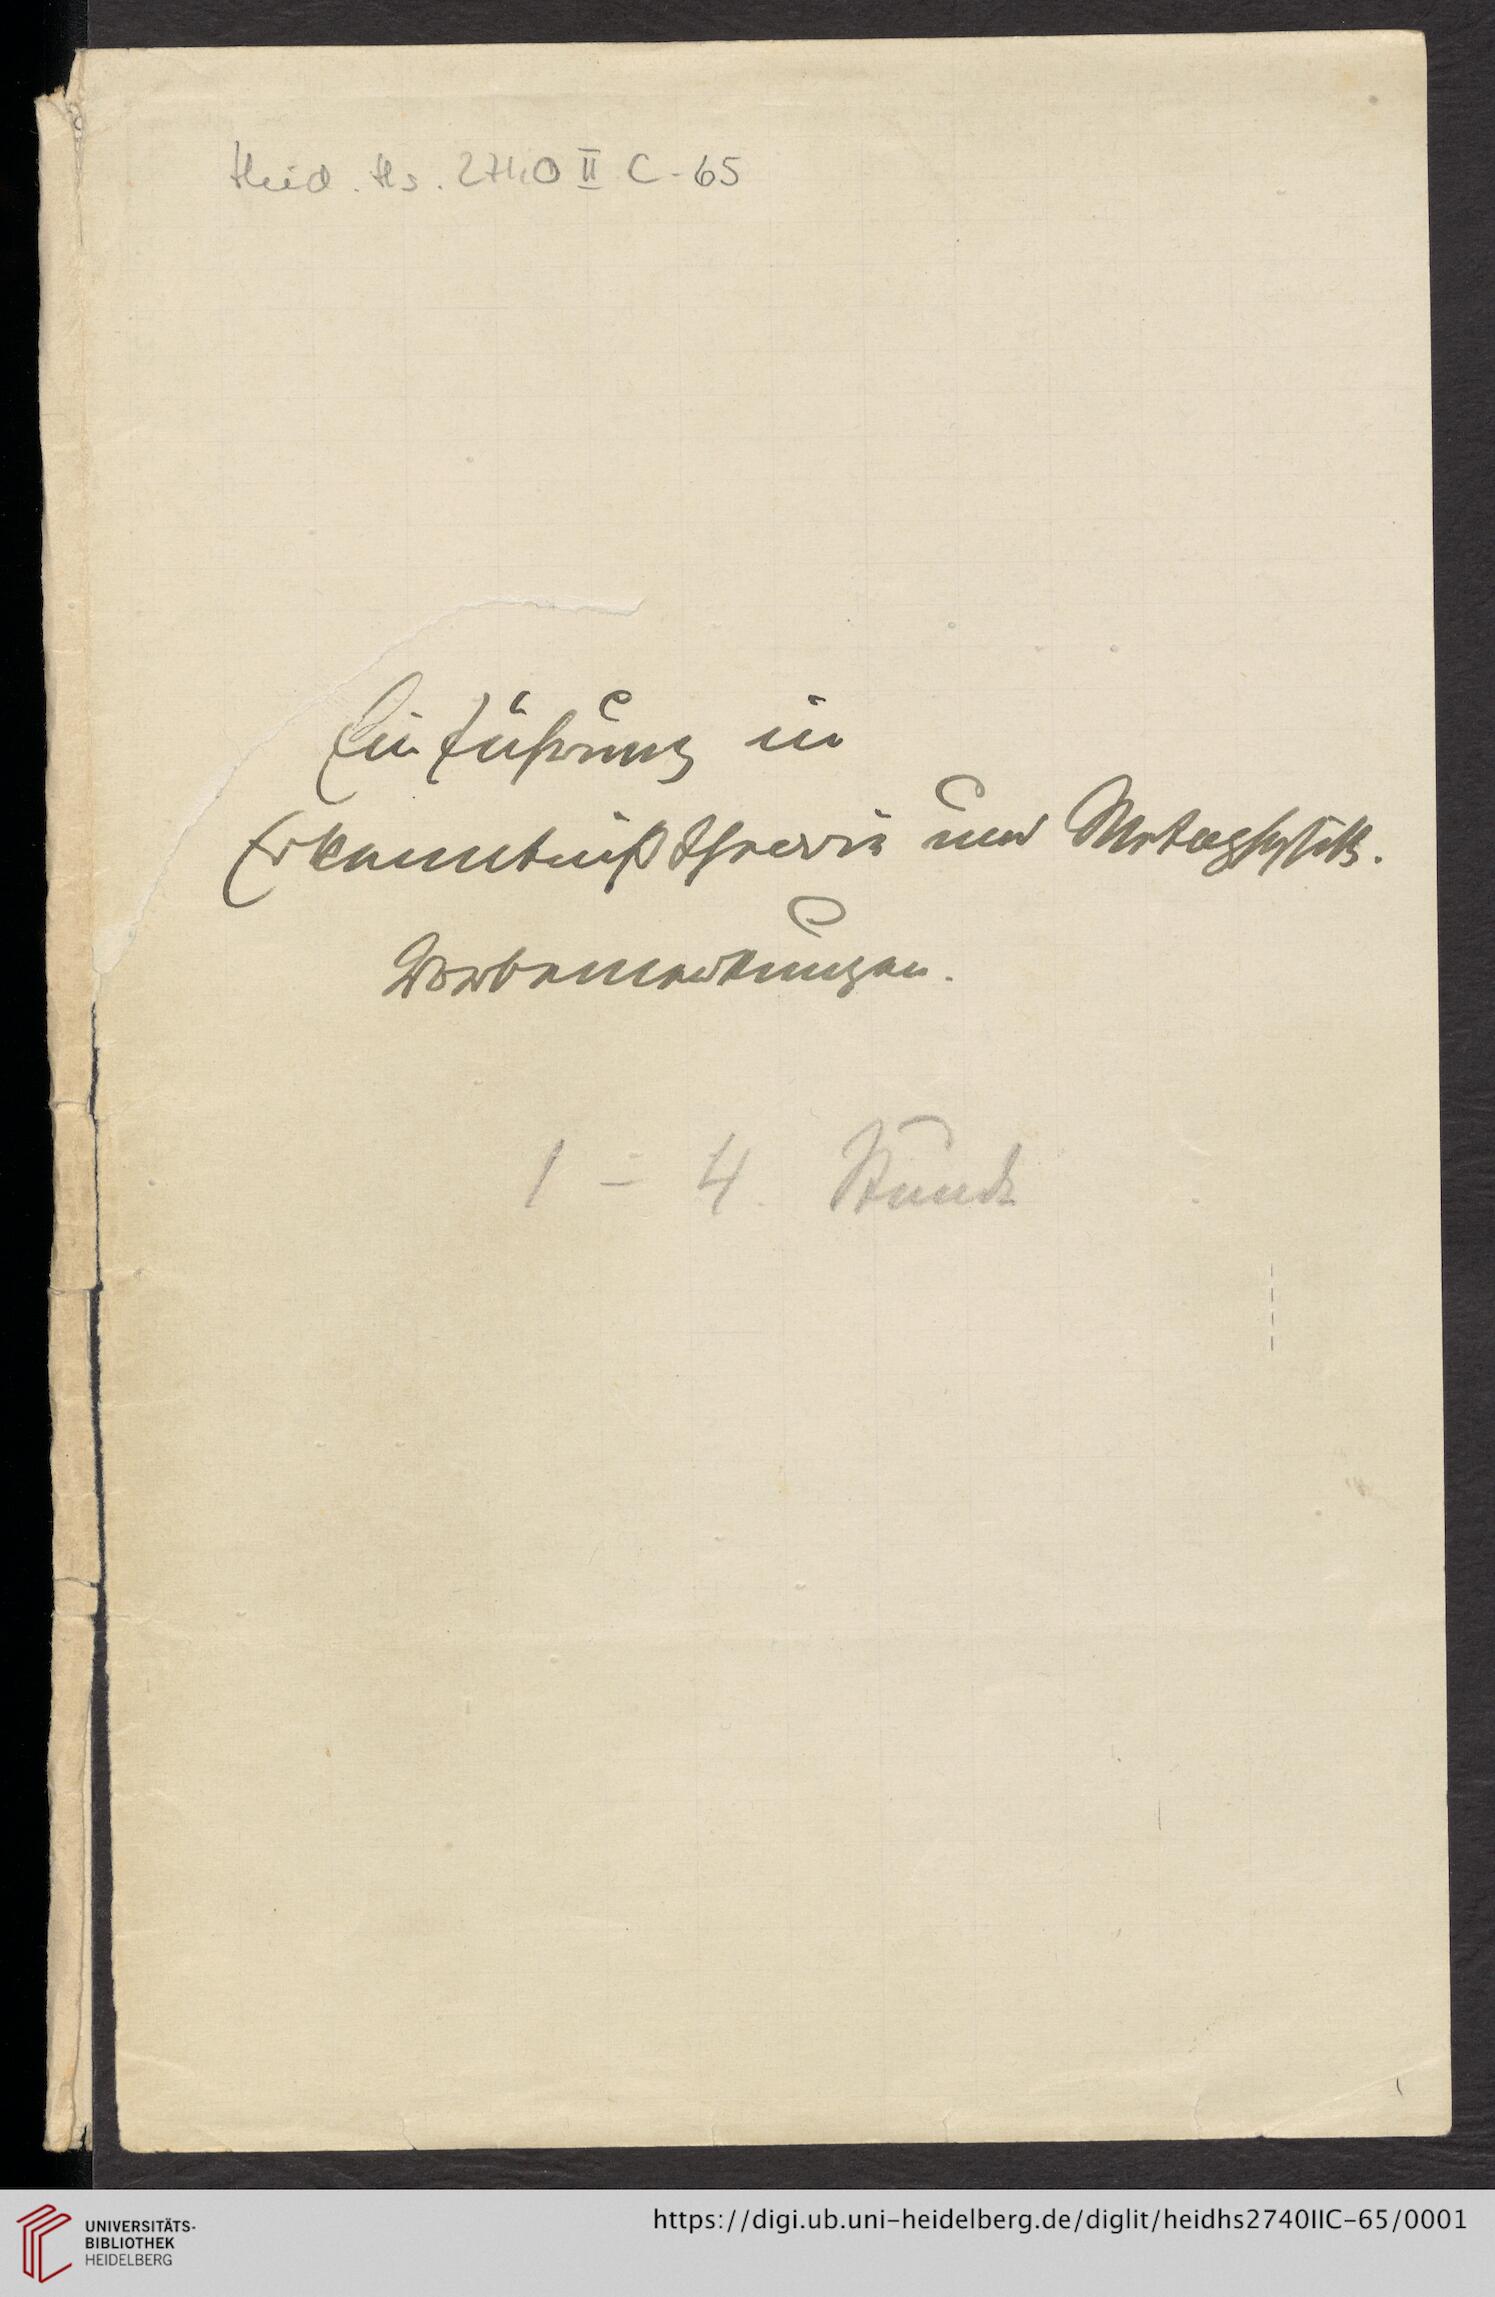 Heid. Hs. 2740 II C - 65
Einführung in
Erkenntnißtheorie und Metaphysik.
Vorbemerkungen.
1 - 4. Stunde
UNIVERSITÄTS-
BIBLIOTHEK
HEIDELBERG
https://digi.ub.uni-heidelberg.de/diglit/heidhs2740IIC-65/0001